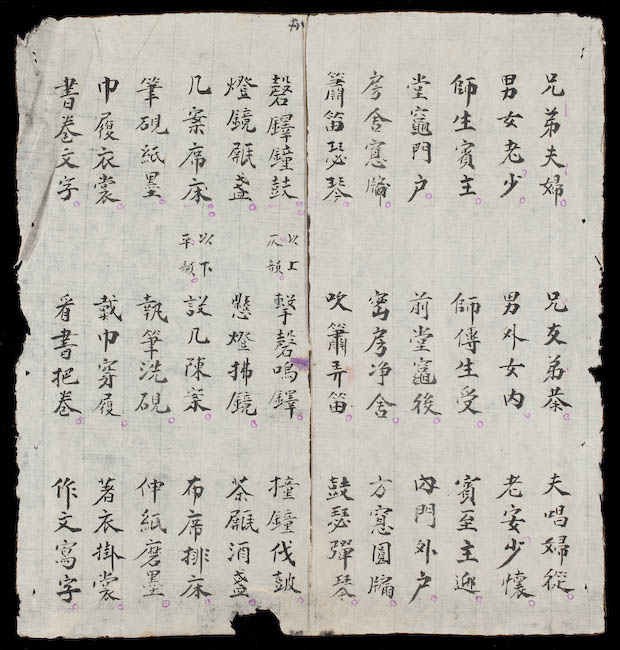 兄弟夫婦 兄友弟恭 夫唱婦從
男女老少 男外女內 老安少懷
師生賓主 師傳生受 賓至主迎
堂竈門户 前堂竈後 內門外户
房舍窻牖 密房净舍 方窻圓牖
簫笛瑟琴 吹簫弄笛 鼓瑟彈琴
磬鐸鐘鼓 以上仄韻 擊磬鳴鐸 撞鐘伐鼓
燈鏡甌盞 懸燈拂鏡 茶甌酒盞
几案席床 以下平韻 設几陳案 布席排床
筆硯紙墨 執筆洗硯 伸紙磨墨
巾履衣裳 戴巾穿履 著衣掛裳
書卷文字 看書把卷 作文寫字